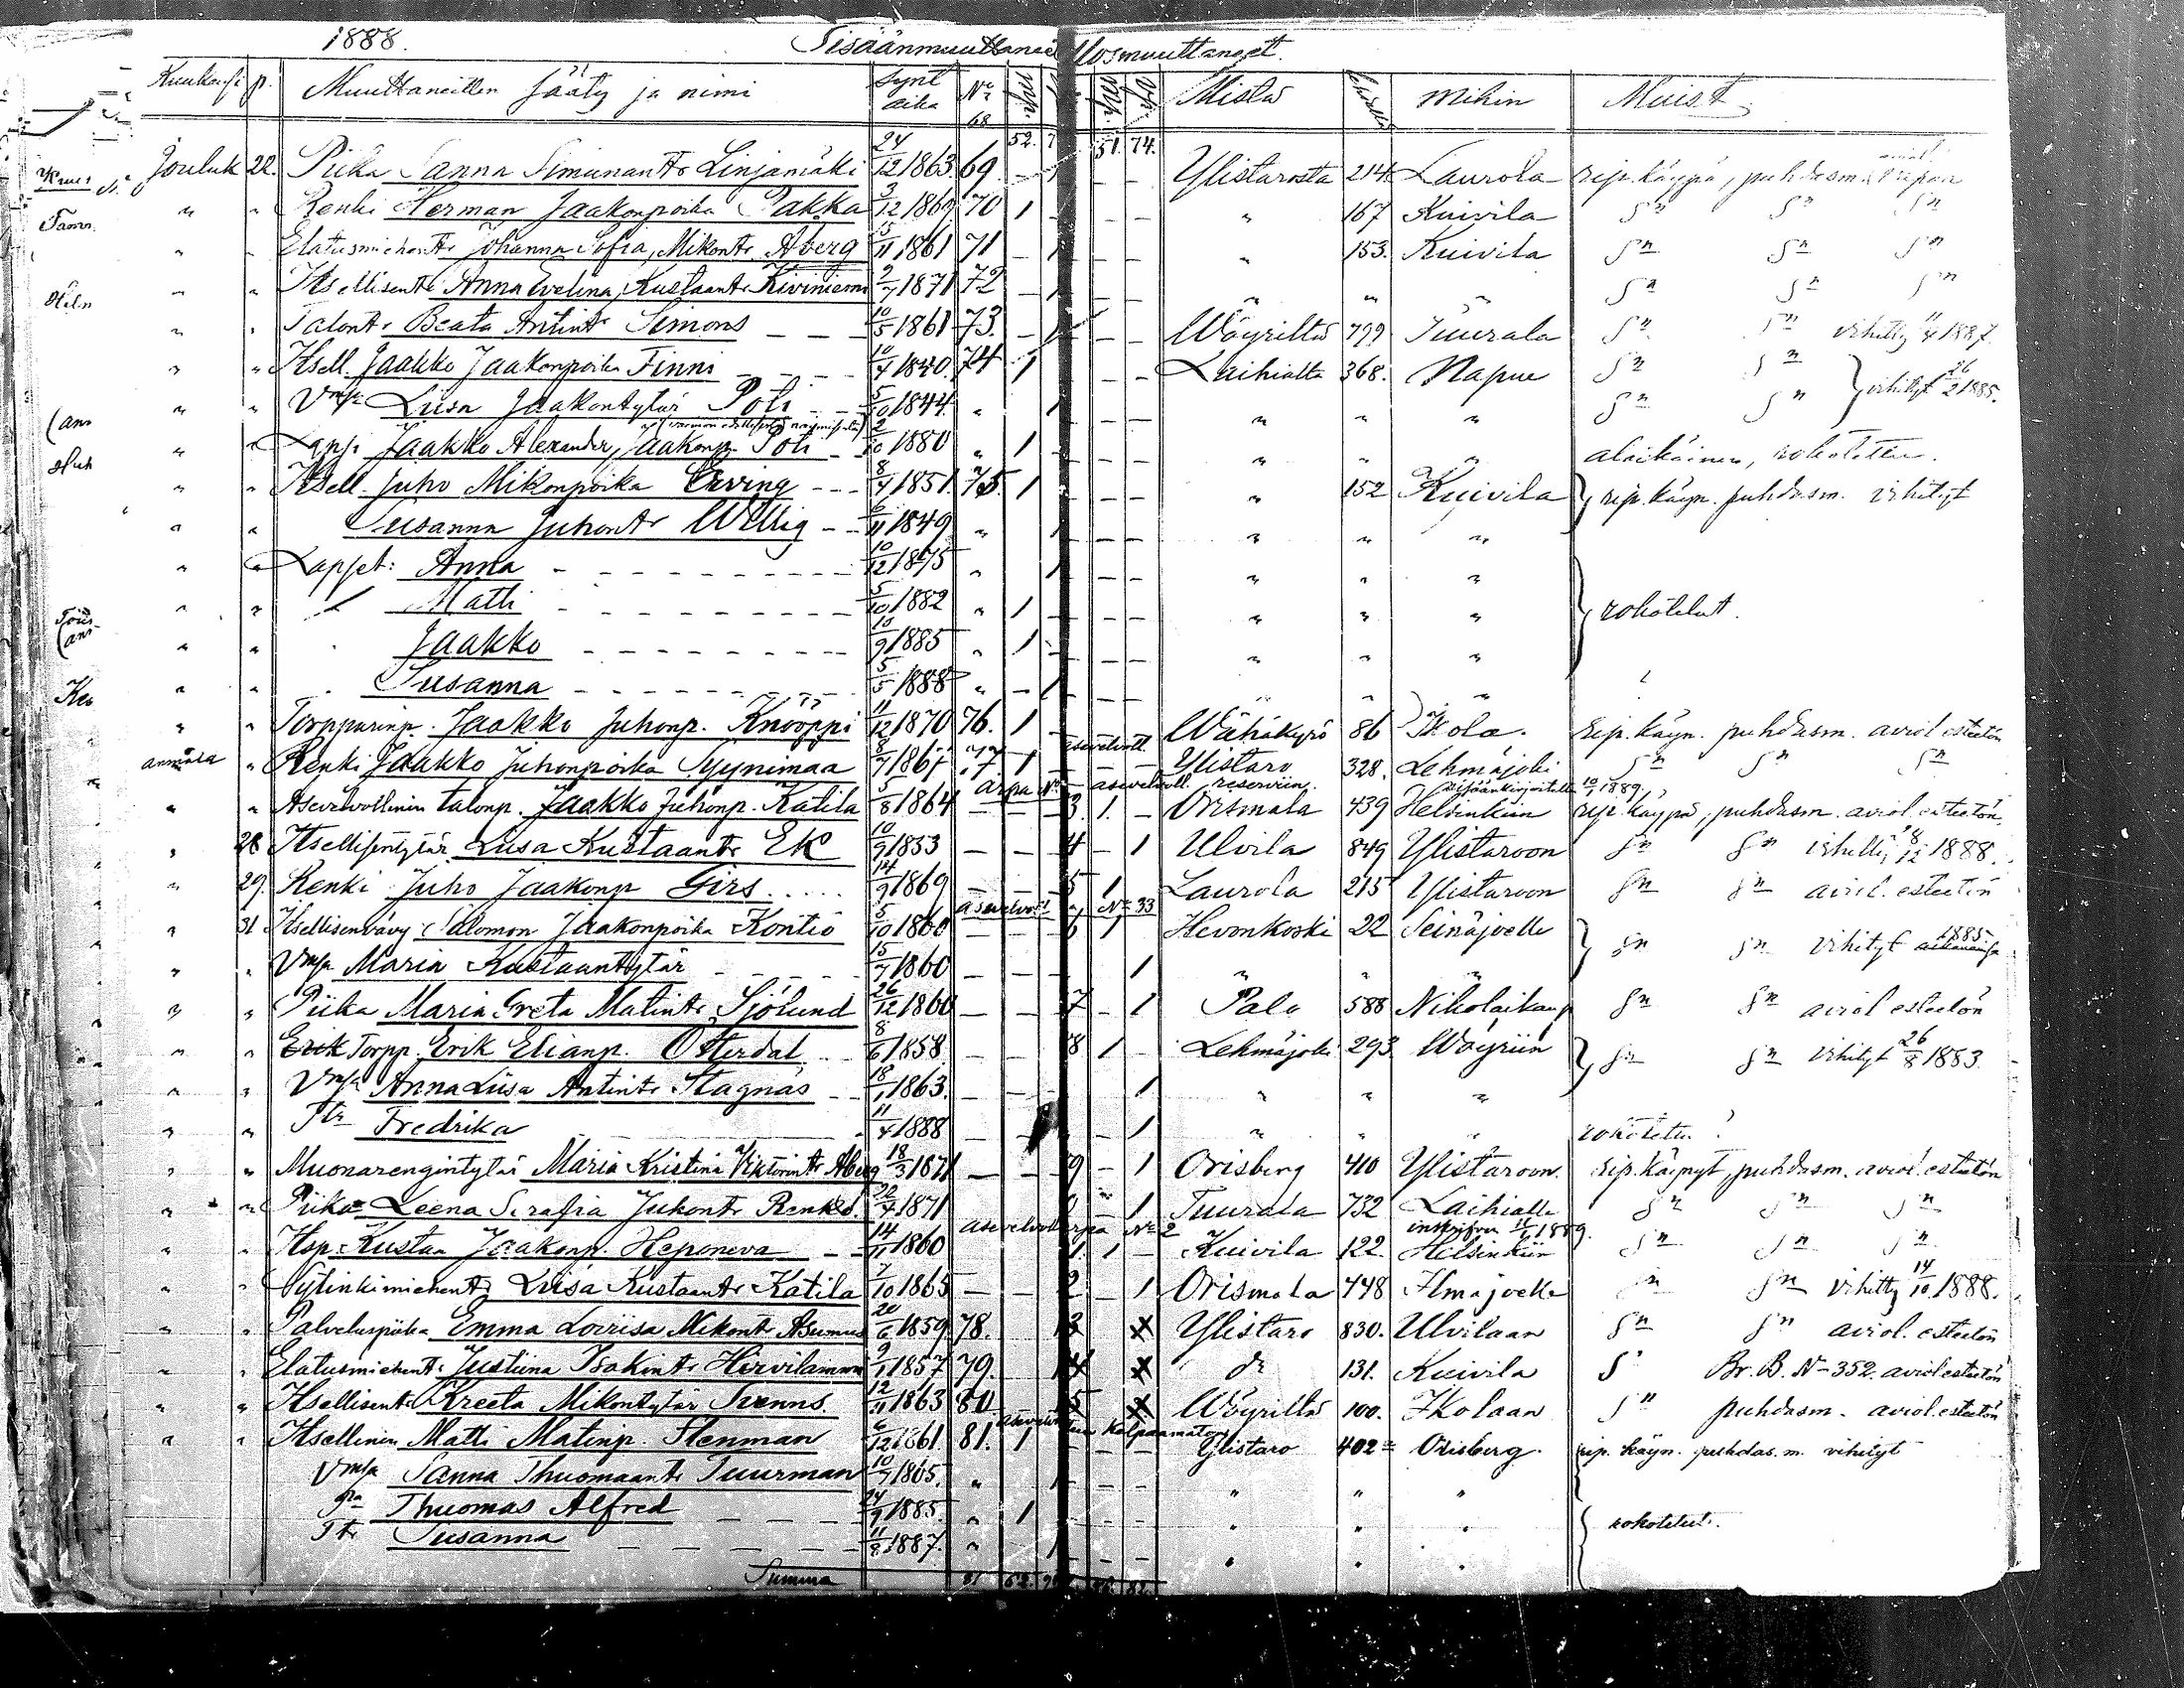 1888. Sisäänmuuttaneet Ulosmuuttaneet.
Kuukausi p. Muuttaneitten Sääty ja nimi Synt aika No Mistä Mihin Muist.
68 52. 51. 74.
Jouluk 22. Piika Sanna Simunantr Linjamäki 24/12 1863. 69. – 1 – – Ylistarosta 214 Laurola rip. käypä, puhdasm.
" " Renki Herman Jaakonpoika Pakka 3/12 1869 70 1 – – " 167 Kuivila Sn Sn Sn
" " Elatusmiehentr Johanna Sofia, Mikontr Åberg 15/11 1861 71 – 1 – – " 153. Kuivila Sn Sn Sn
" " Itsellisentr Anna Evelina, Kustaantr Kiviniemi 9/7 1871 72 – 1 – – " " " Sn Sn Sn
" " Talontr Beata Antintr Simons – – – 10/5 1861 73. – 1 – – Wöyriltä 799 Tuurala Sn Sn vihitty 11/4 1887.
" " Itsell. Jaakko Jaakonpoika Finni – – – 10/4 1840. 74 1 – – Laihialta 368. Napue Sn Sn } vihityt 26/2 1885.
" " Vmsa Liisa Jaakontytär Poti – – 5/10 1844. " 1 – – " " " Sn Sn
" " Lapsi Jaakko Alexander, Jaakonp. Poti – 2/10 1880 " 1 – – " " " alaikäinen, rokotettu.
" " Itsell. Juho Mikonpoika Erving – – – 8/4 1851. 75. 1 – – " 152 Kuivila } rip. käyn. puhdasm. vihityt
" " Susanna Juhontr Willig – – 6/11 1849 " 1 – – " " "
" " Lapset: Anna – – – 10/12 1875 " 1 – – " " "
" " Matti – – – 5/10 1882 " 1 – – " " " } rokotetut.
" " Jaakko – – – 10/9 1885 " 1 – – " " "
" " Susanna – – – 5/5 1888 " – 1 – – " " "
" " Torpparinp. Jaakko Juhonp. Knööppi 11/12 1870 76. 1 – – Wähäkyrö 86 Ikola. rip. käyn. puhdasm. aviol. esteetön
" " Renki Jaakko Juhonpoika Syynimaa 8/7 1867 77 1 – – asevelvoll. Ylistaro 328. Lehmäjoki Sn Sn Sn
arpa No – asevelvoll. reserviin. sisäänkirjoitettu 10/1 1889.
" " Asevelvollinen talonp. Jaakko Juhonp. Katila 5/8 1864 – – 3. 1. – Orismala 439 Helsinkiin rip. käypä, puhdasm. aviol. esteetön.
" 28 Itsellisentytär Liisa Kustaantr Ek 10/9 1853 – – 4 – 1 Ulvila 849 Ylistaroon Sn Sn vihitty 18/12 1888.
" 29. Renki Juho Jaakonp Girs 14/9 1869 – – 5 1 Laurola 215 Ylistaroon Sn Sn aviol. esteetön
asevelvoll. No 33
" 31 Itsellisenvävy Salomon Jaakonpoika Kontio 5/10 1860 – – 6 1 Hevonkoski 22 Seinäjoelle } Sn Sn vihityt 1885
" " Vmsa Maria Kustaantytär – – 15/7 1860 – – 1 " " "
" " Piika Maria Greta Matintr Sjölund 26/12 1860 – – 7 – 1 Palo 588 Nikolaikaup Sn Sn aviol esteetön
" " Torpp. Erik Elianp. Österdal 8/6 1858 8 1 – Lehmäjoki 293. Wöyriin } Sn Sn vihityt 26/8 1883.
" " Vmsa Anna Liisa Antintr Stagnäs – – 18/1 1863. 1 " " "
" " Ttr Fredrika 11/4 1888 – – – 1 " " " rokotettu
" " Muonarengintytär Maria Kristina Viktorintr Åberg 18/3 1871 – – 9 – 1 Orisberg 410 Ylistaroon. rip. käynyt, puhdasm. aviol. esteetön
" " Piika Leena Serafia Juhontr Renko. 1871 1 Tuurala 732 Laihialle Sn Sn Sn
asevelvoll. arpa No 2 1889.
" " Itsp. Kustaa Jaakonp. Heponeva – – 14/11 1860 1. 1 – Kuivila 122. Helsinkiin Sn Sn Sn
" " Sytinkimiehentr Liisa Kustaantr Katila 7/10 1865 – – 2 – 1 Orismala 448 Ilmajoelle Sn Sn vihitty 14/10 1888.
" " Palveluspiika Emma Lovisa Mikontr Asumus 20/6 1859 78. 3 x Ylistaro 830. Ulvilaan Sn Sn aviol. esteetön
" " Elatusmiehentr Justiina Isakintr Hirvilammi 9/1 1857 79. 4 x do 131. Kuivila S Br. B. No 352. aviol esteetön
" " Itsellisentr Kreeta Mikontytär Svenns. 12/11 1863 80 5 x Wöyriltä 100. Ikolaan Sn puhdasm. aviol. esteetön
kelpaamaton
" " Itsellinen Matti Matinp. Stenman 6/12 1861. 81. 1 – – Ylistaro 402 Orisberg. rip. käyn. puhdas. m. vihityt
Vmsa Sanna Thuomaantr Tuurman 10/7 1865. " 1 – – " " "
Pa Thuomas Alfred – – – 24/9 1885. " 1 – – " " " } rokotetut.
Ttr Susanna – – – 11/8 1887. " 1 – – " " "
Summa 81